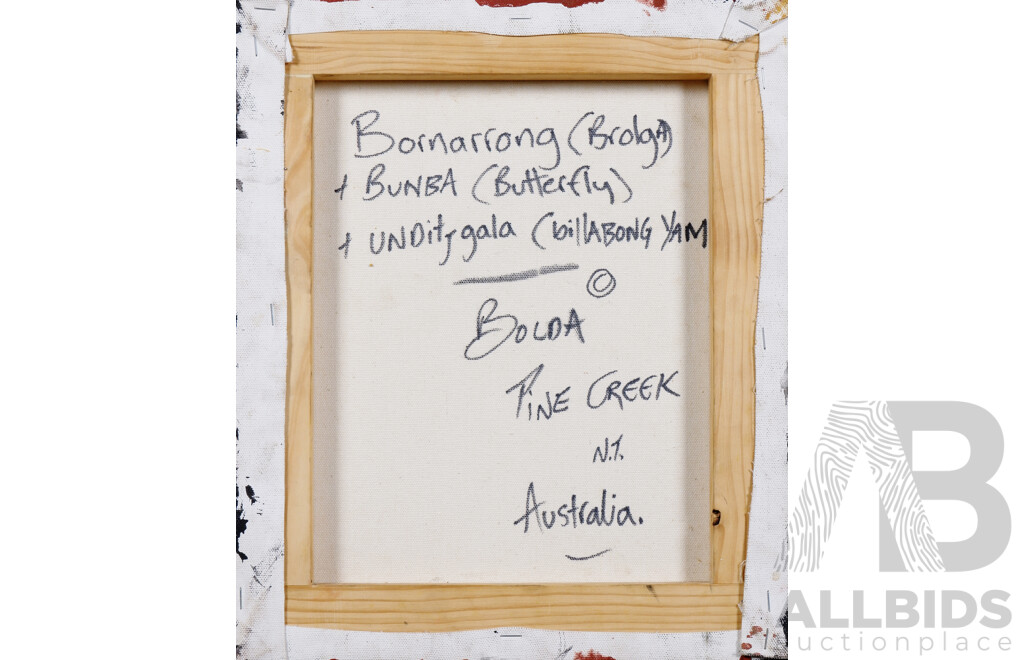 Bornarrong (Brolga)
+ BUNBA (Butterfly)
+ UNDitjgala (billABONG YAM
©
BOLDA
PINE CREEK
N.T.
Australia.
AB
ALLBIDS
auctionplace